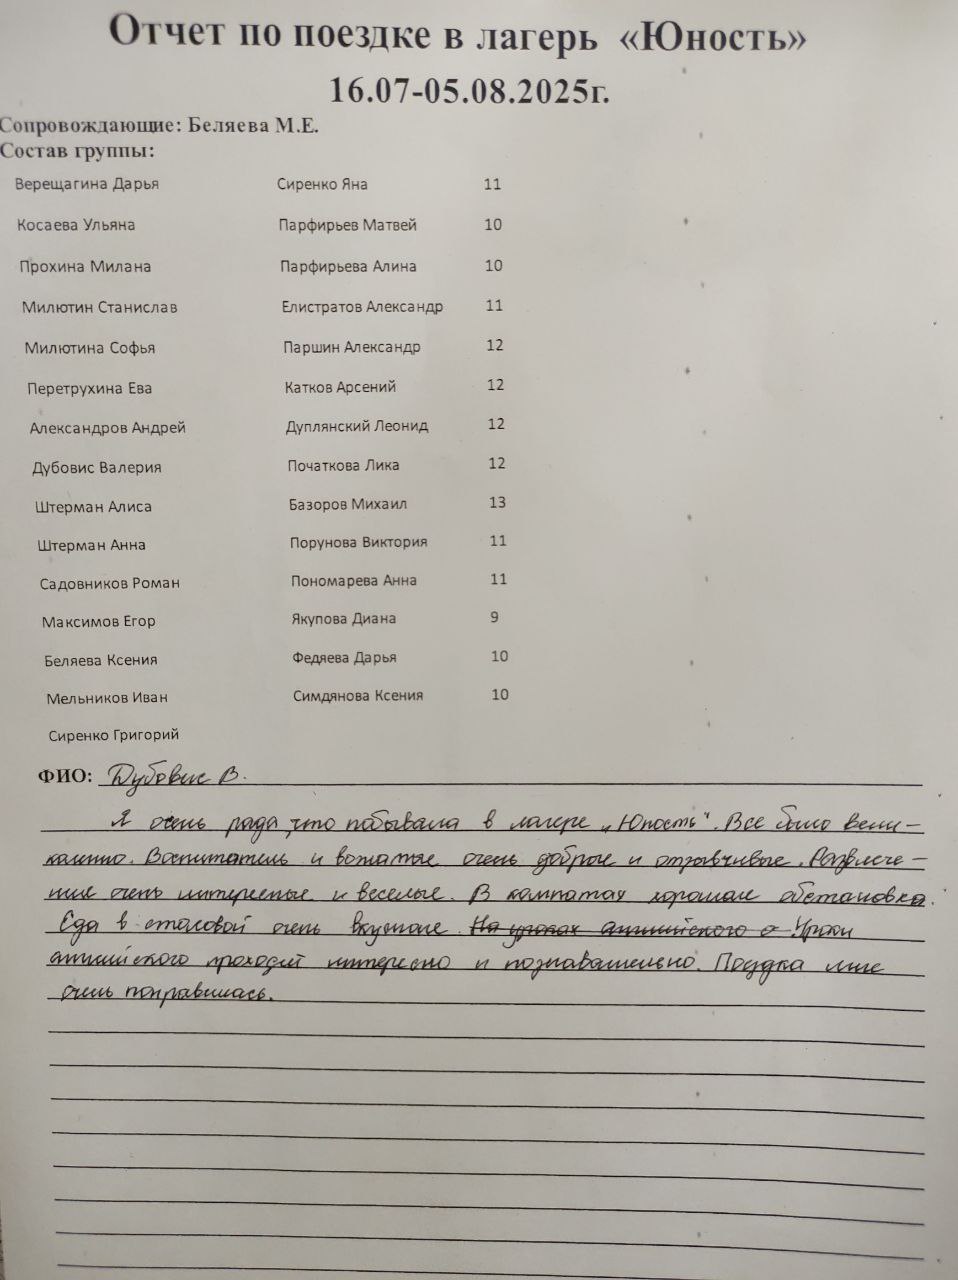 Отчет по поездке в лагерь «Юность»
16.07-05.08.2025г.
Сопровождающие: Беляева М.Е.
Состав группы:
Верещагина Дарья Сиренко Яна 11
Косаева Ульяна Парфирьев Матвей 10
Прохина Милана Парфирьева Алина 10
Милютин Станислав Елистратов Александр 11
Милютина Софья Паршин Александр 12
Перетрухина Ева Катков Арсений 12
Александров Андрей Дуплянский Леонид 12
Дубовис Валерия Початкова Лика 12
Штерман Алиса Базоров Михаил 13
Штерман Анна Порунова Виктория 11
Садовников Роман Пономарева Анна 11
Максимов Егор Якупова Диана 9
Беляева Ксения Федяева Дарья 10
Мельников Иван Симдянова Ксения 10
Сиренко Григорий
ФИО: Дубовис В.
Я очень рада, что побывала в лагере „Юность". Все было вели-
колепно. Воспитатель и вожатые очень добрые и отзывчивые. Развлече-
ния очень интересные и веселые. В комнатах хорошая обстановка.
Еда в столовой очень вкусная. На уроках английского о Уроки
английского проходят интересно и познавательно. Поездка мне
очень понравилась.